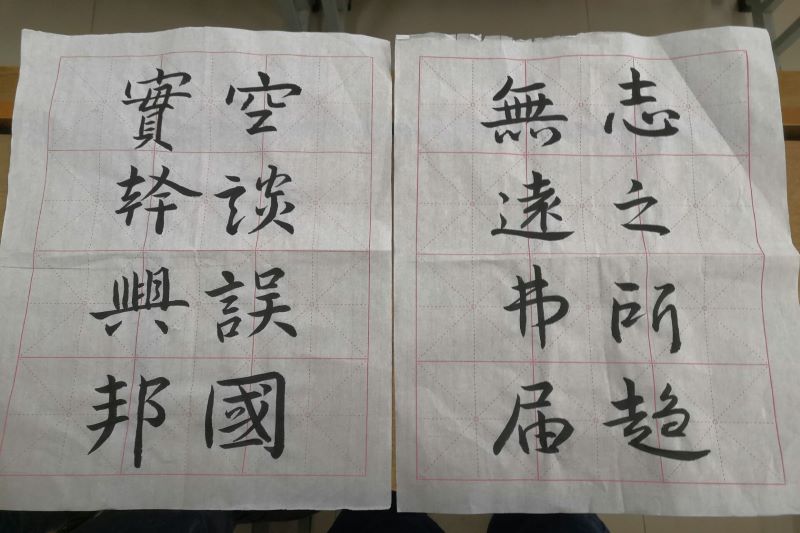 志之所趋
無遠弗届
空談誤國
實幹興邦